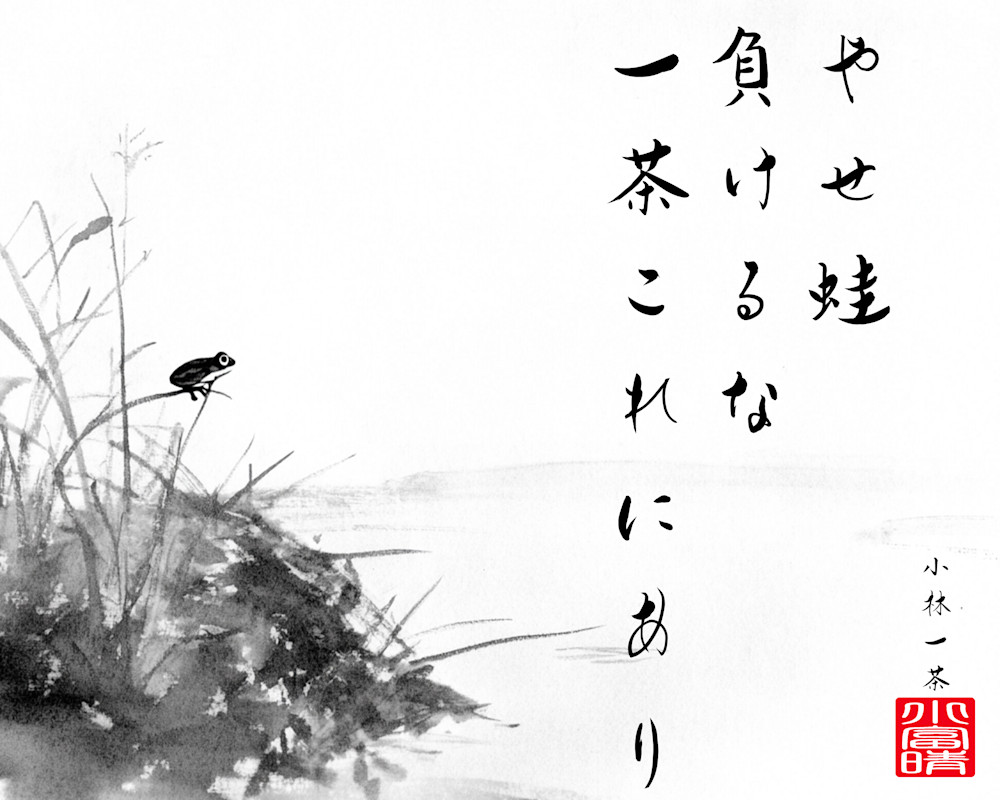 やせ蛙
負けるな
一茶これにあり
小林一茶
小富晴